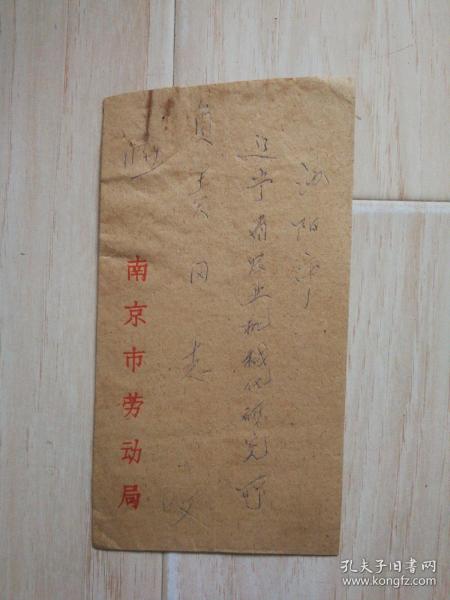 沈阳市
辽宁省农业机械化研究所
同志
收
南京市劳动局
孔夫子旧书网
www.kongfz.com